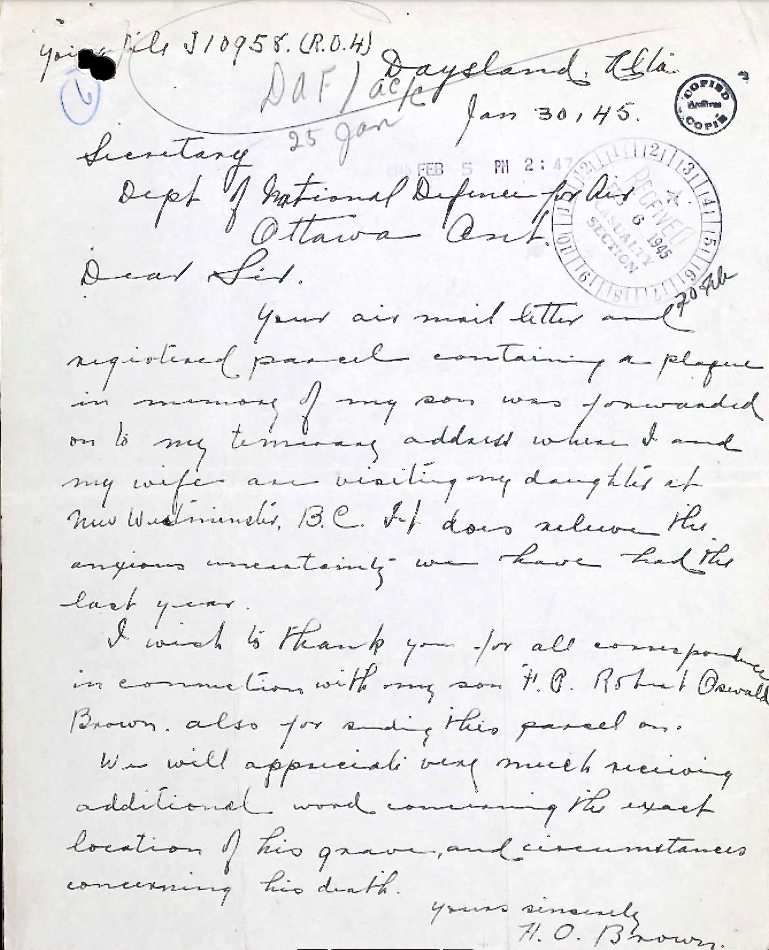 Your file J10958. (R.O.4)
DAF/ack
25 Jan
Daysland, Alta
Jan 30, 45.
COPIED
Archives
COPIÉ
Secretary
FEB 5 PM 2:47
Dept of National Defence for Air
Ottawa Ont.
RECEIVED
6 1945
CASUALTY
SECTION
Dear Sir.
20 Feb
Your air mail letter and
registered parcel containing a plaque
in memory of my son was forwarded
on to my temerary address where I and
my wife are visiting my daughter at
New Westminster, B.C. It does relieve the
anxious uncertainty we have had the
last year.
I wish to thank you for all correspondence
in connection with my son F.O. Robert Oswald
Brown. also for sending this parcel on.
We will appreciate very much receiving
additional word concerning the exact
location of his grave, and circumstances
concerning his death.
yours sincerely
H. O. Brown.